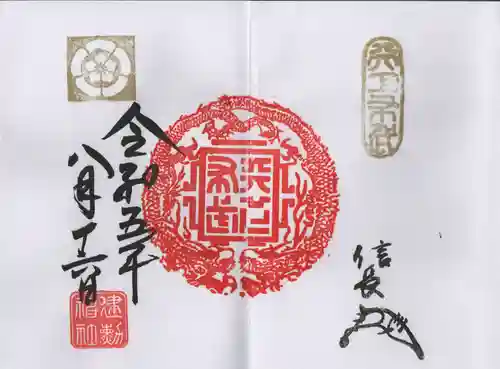 天下布武
信長
天下布武
令和五年
八月十六日
建勲
神社